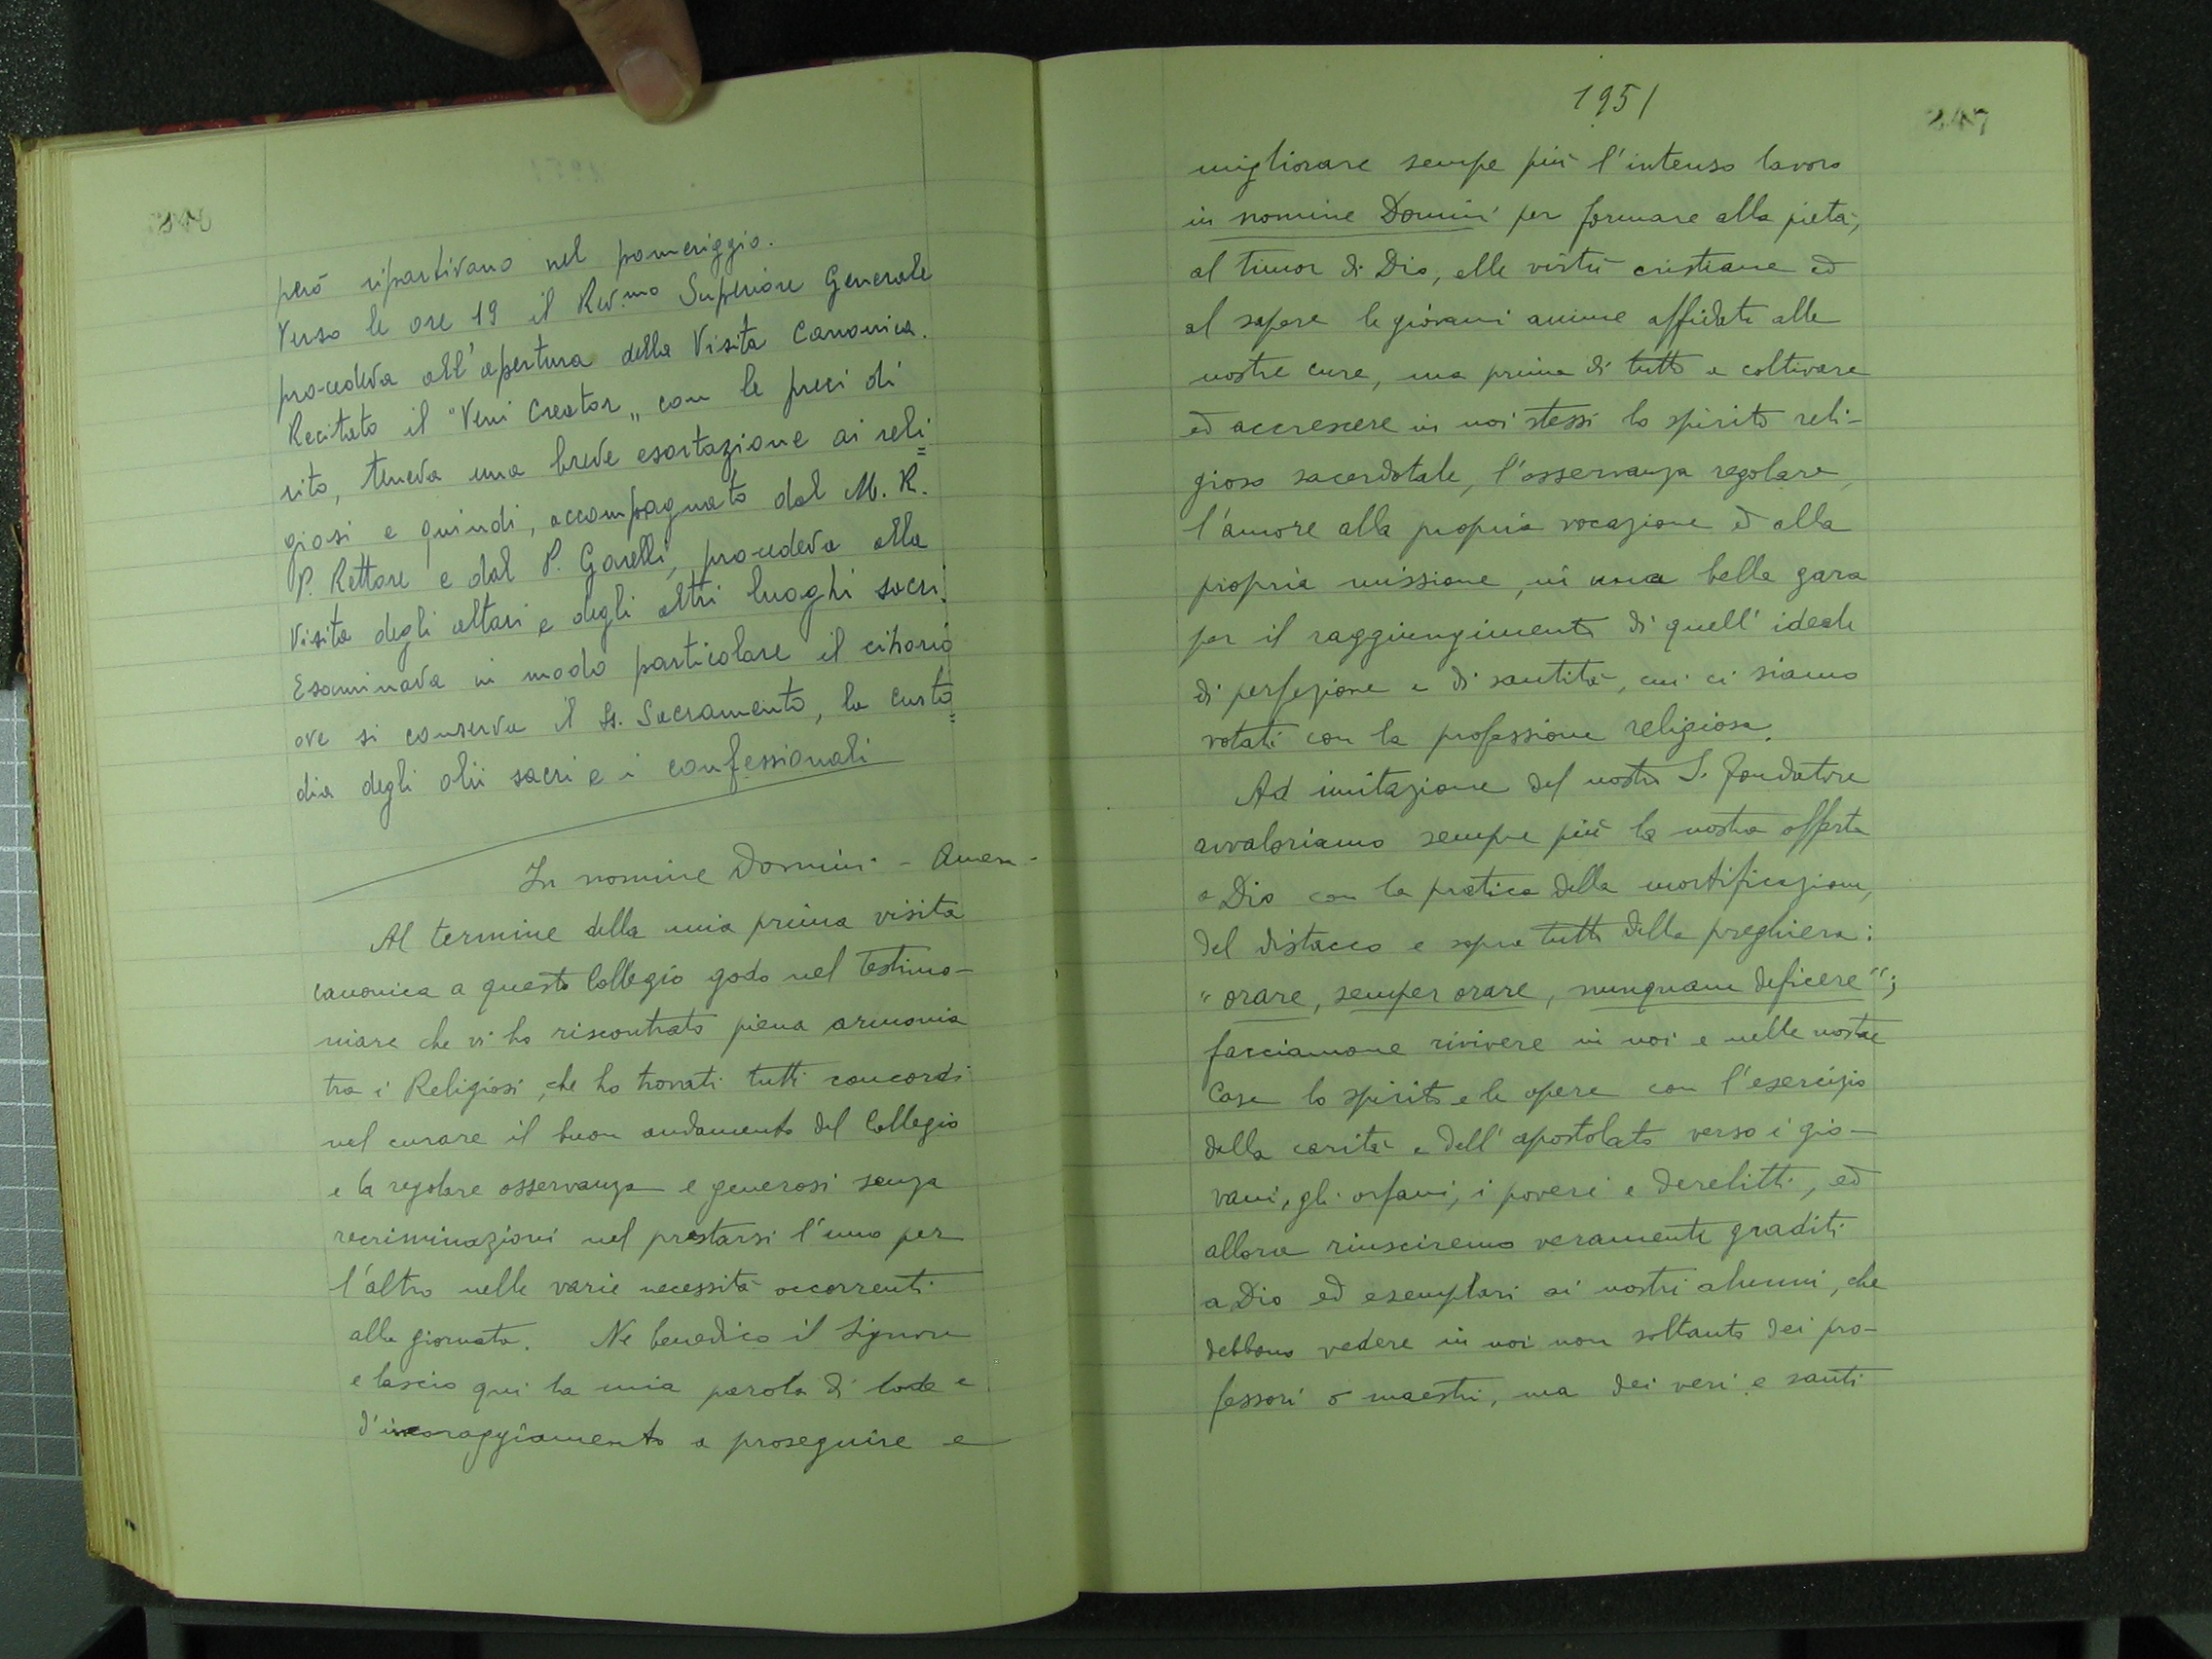 però ripartivano nel pomeriggio.
Verso le ore 19 il Rev.mo Superiore Generale
procedeva all'apertura della Visita Canonica.
Recitato il "Veni Creator„ con le preci di
rito, teneva una breve esortazione ai reli=
giosi e quindi, accompagnato dal M. R.
P. Rettore e dal P. Garelli, procedeva alla
Visita degli altari e degli altri luoghi sacri.
Esaminava in modo particolare il ciborio
ove si conserva il SS. Sacramento, la custo=
dia degli olii sacri e i confessionali
In nomine Domini - Amen -
Al termine della mia prima visita
canonica a questo Collegio godo nel testimo-
niare che vi ho riscontrato piena armonia
tra i Religiosi, che ho trovati tutti concordi
nel curare il buon andamento del Collegio
e la regolare osservanza e generosi senza
recriminazioni nel prestarsi l'uno per
l'altro nelle varie necessità occorrenti
alla giornata. Ne benedico il Signore
e lascio qui la mia parola di lode e
d'incoraggiamento a proseguire e
1951
247
migliorare sempe più l'intenso lavoro
in nomine Domini per formare alla pietà,
al timor di Dio, alle virtù cristiane ed
al sapere le giovani anime affidate alle
nostre cure, ma prima di tutto a coltivare
ed accrescere in noi stessi lo spirito reli-
gioso sacerdotale, l'osservanza regolare,
l'amore alla propria vocazione ed alla
propria missione, in una bella gara
per il raggiungimento di quell'ideale
di perfezione e di santità, cui ci siamo
votati con la professione religiosa.
Ad imitazione del nostro S. Fondatore
avvaloriamo sempre più la nostra offerta
a Dio con la pratica della mortificazione,
del distacco e sopra tutto della preghiera:
"orare, semper orare, nunquam deficere";
facciamone rivivere in noi e nelle nostre
Case lo spirito e le opere con l'esercizio
della carità e dell'apostolato verso i gio-
vani, gli orfani, i poveri e derelitti, ed
allora riusciremo veramente graditi
a Dio ed esemplari ai nostri alunni, che
debbono vedere in noi non soltanto dei pro-
fessori o maestri, ma dei veri e santi